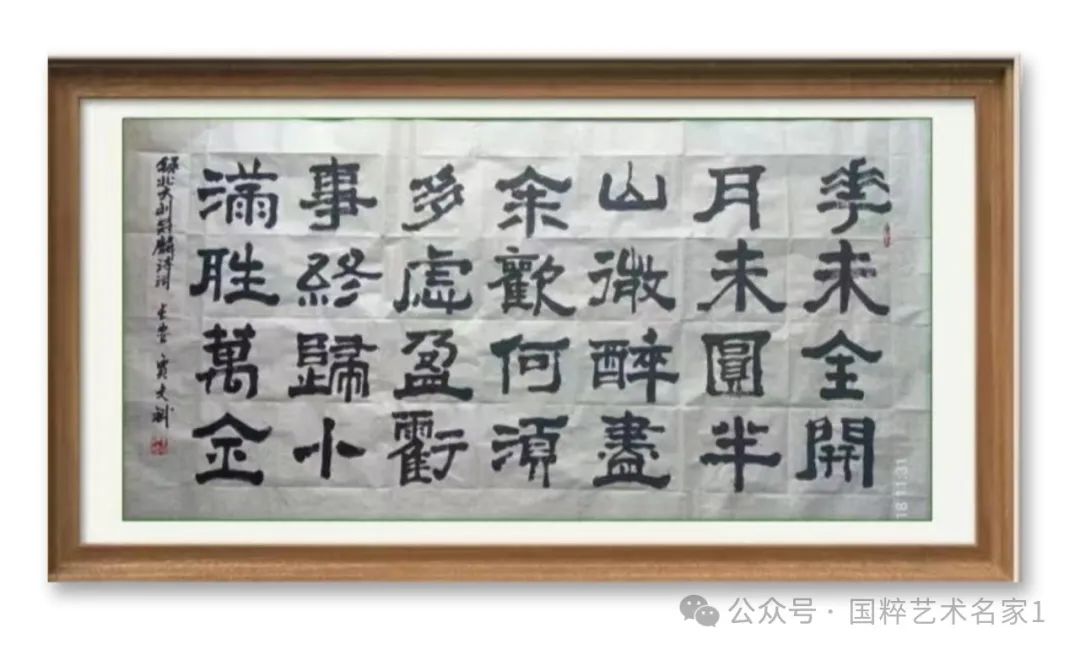 花未全開
月未圓半
山微醉盡
余歡何須
多慮盈虧
事終歸小
滿胜萬金
18 11:31
公众号 · 国粹艺术名家1